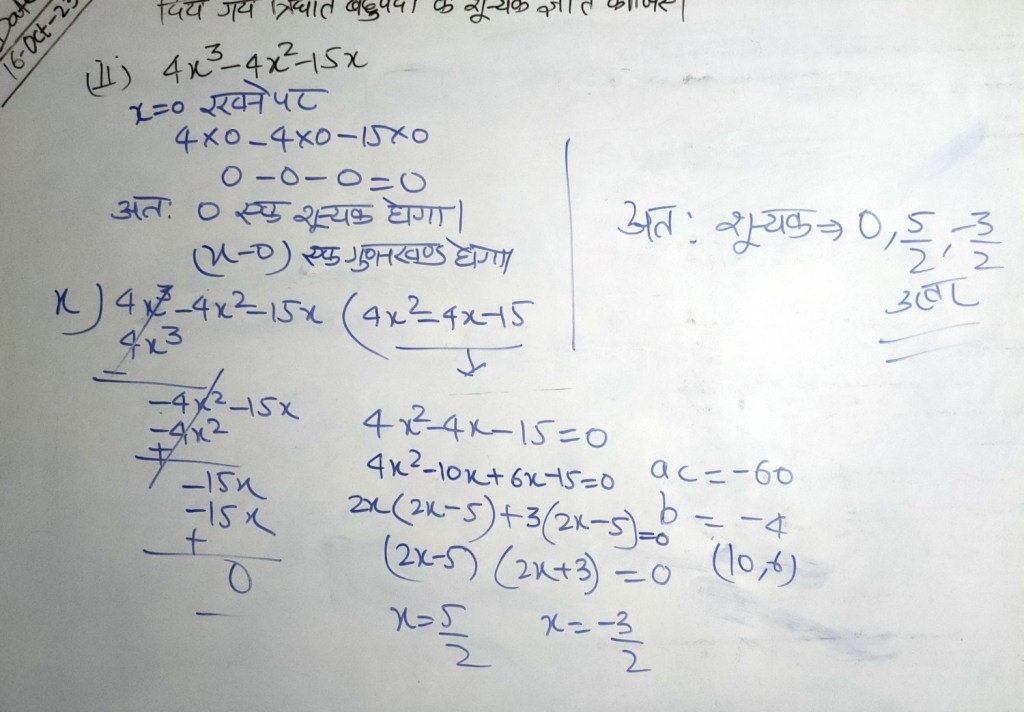 Date
16-Oct-23
दिये गये त्रिघात बहुपदों के शून्यक ज्ञात कीजिए।
(II) 4x³-4x²-15x
x=0 रखने पर
4×0-4×0-15×0
0-0-0=0
अत: 0 एक शून्यक होगा।
(x-0) एक गुणनखण्ड होगा
x) 4x³-4x²-15x (4x²-4x-15
4x³
-
-4x²-15x
-4x²
+
-15x
-15x
+
0
4x²-4x-15=0
4x²-10x+6x-15=0
2x(2x-5)+3(2x-5)=0
(2x-5) (2x+3) =0
x=5/2 x=-3/2
ac=-60
b = -4
(10,6)
अत: शून्यक⇒ 0, 5/2, -3/2
उत्तर